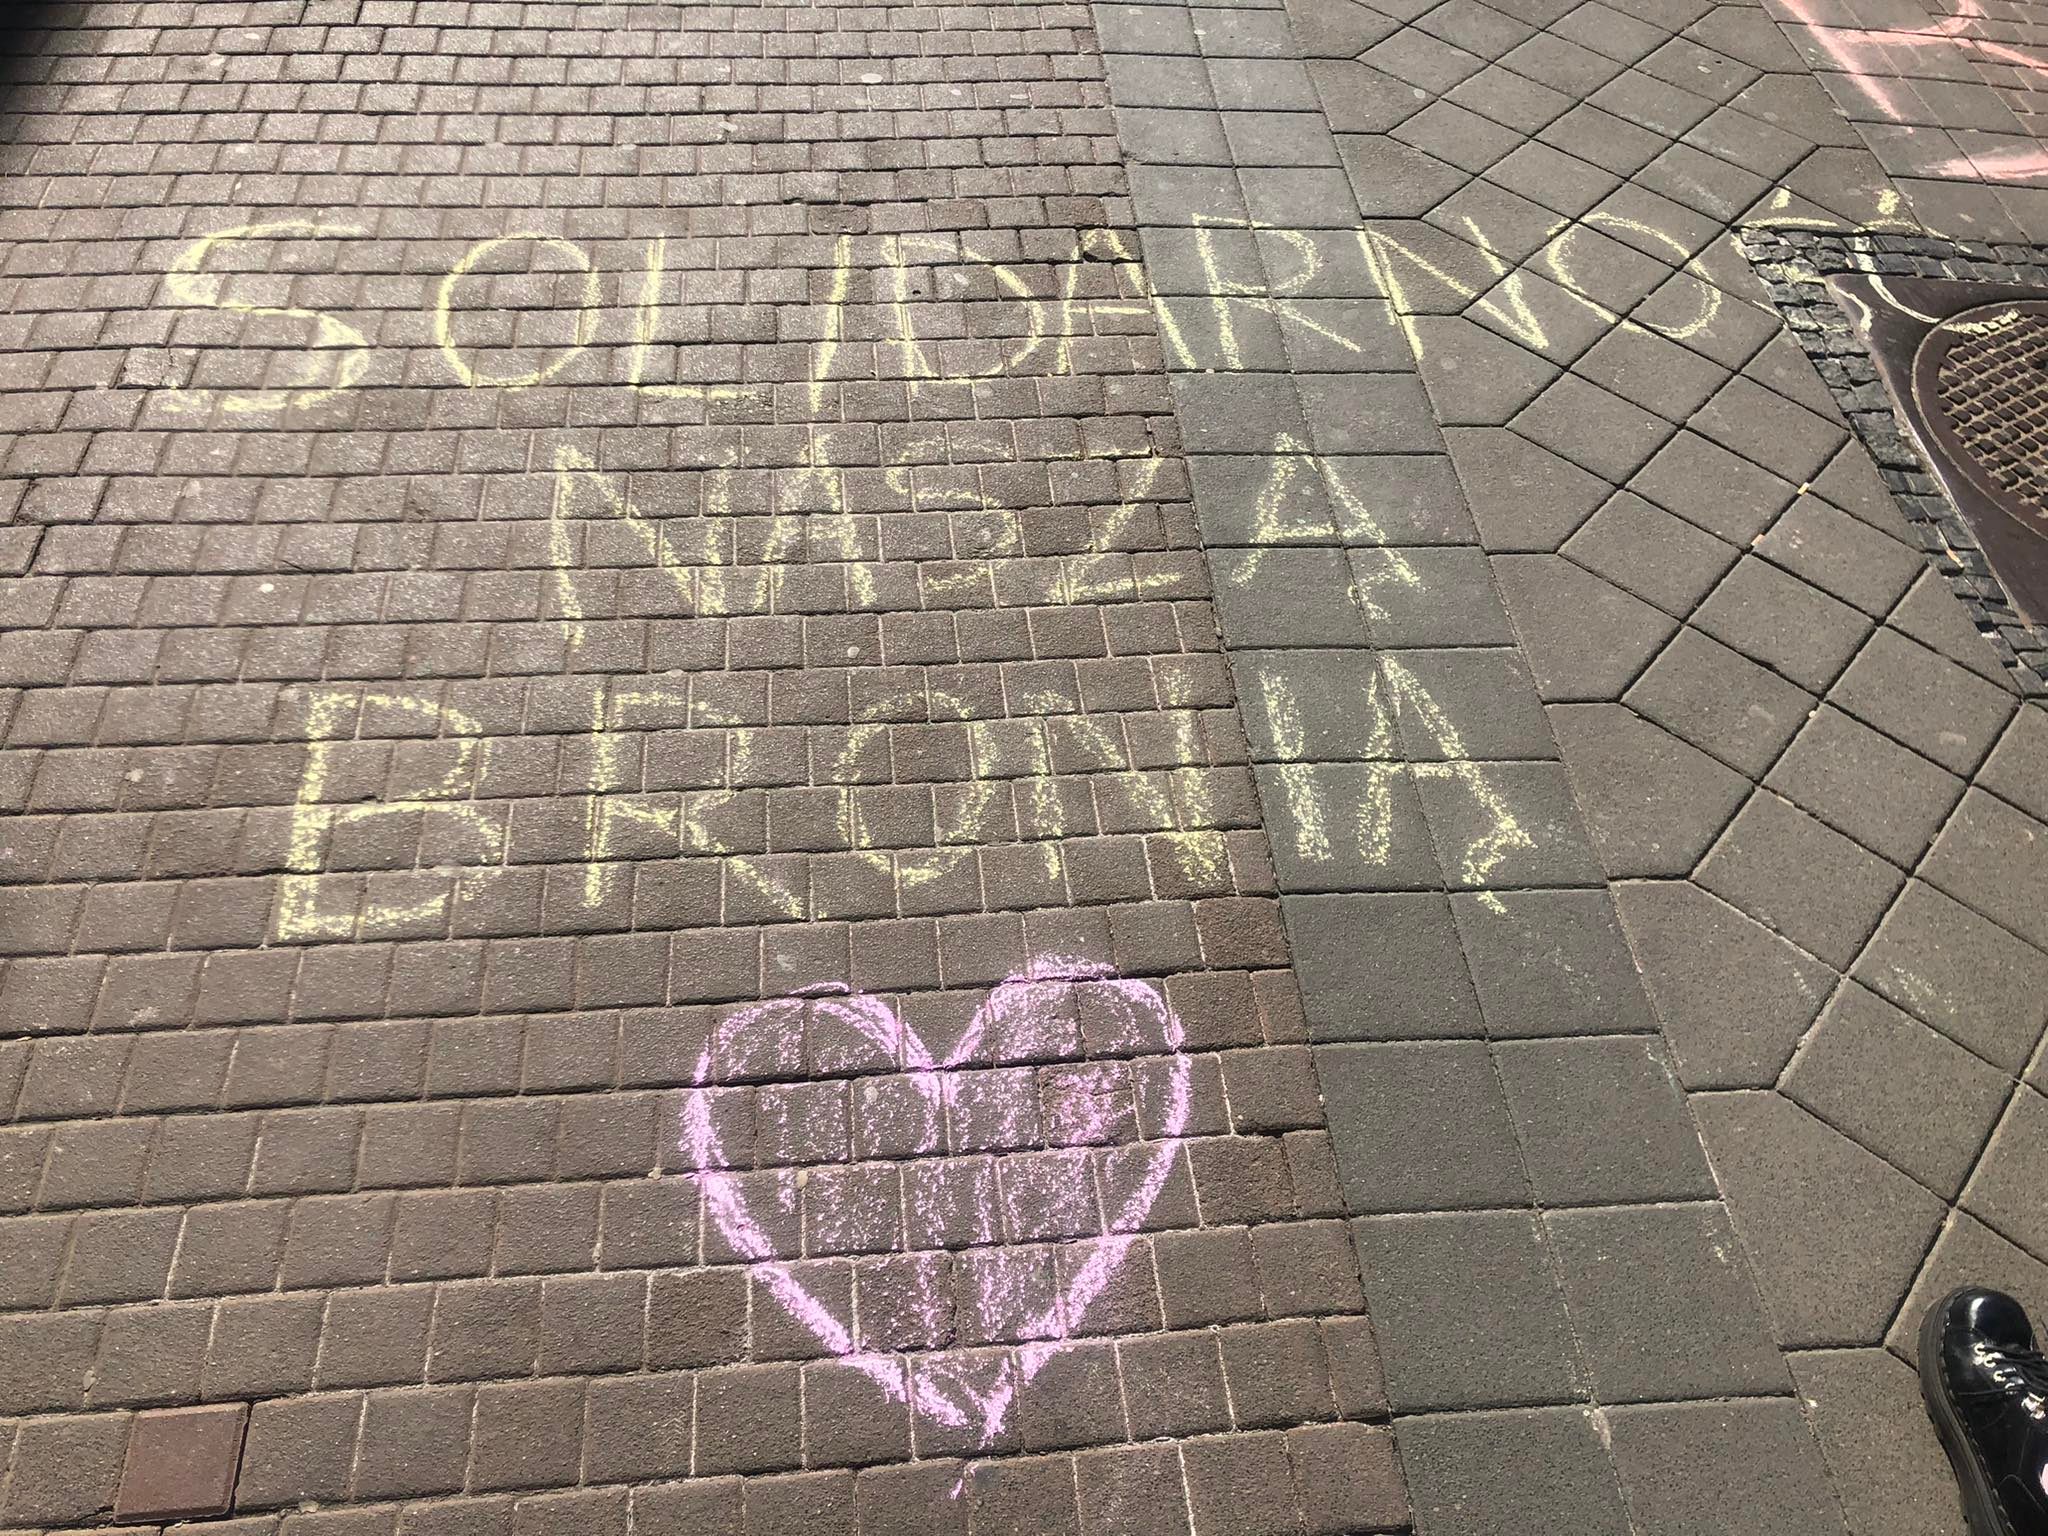 SOLIDARNOŚĆ
NASZĄ
BRONIĄ